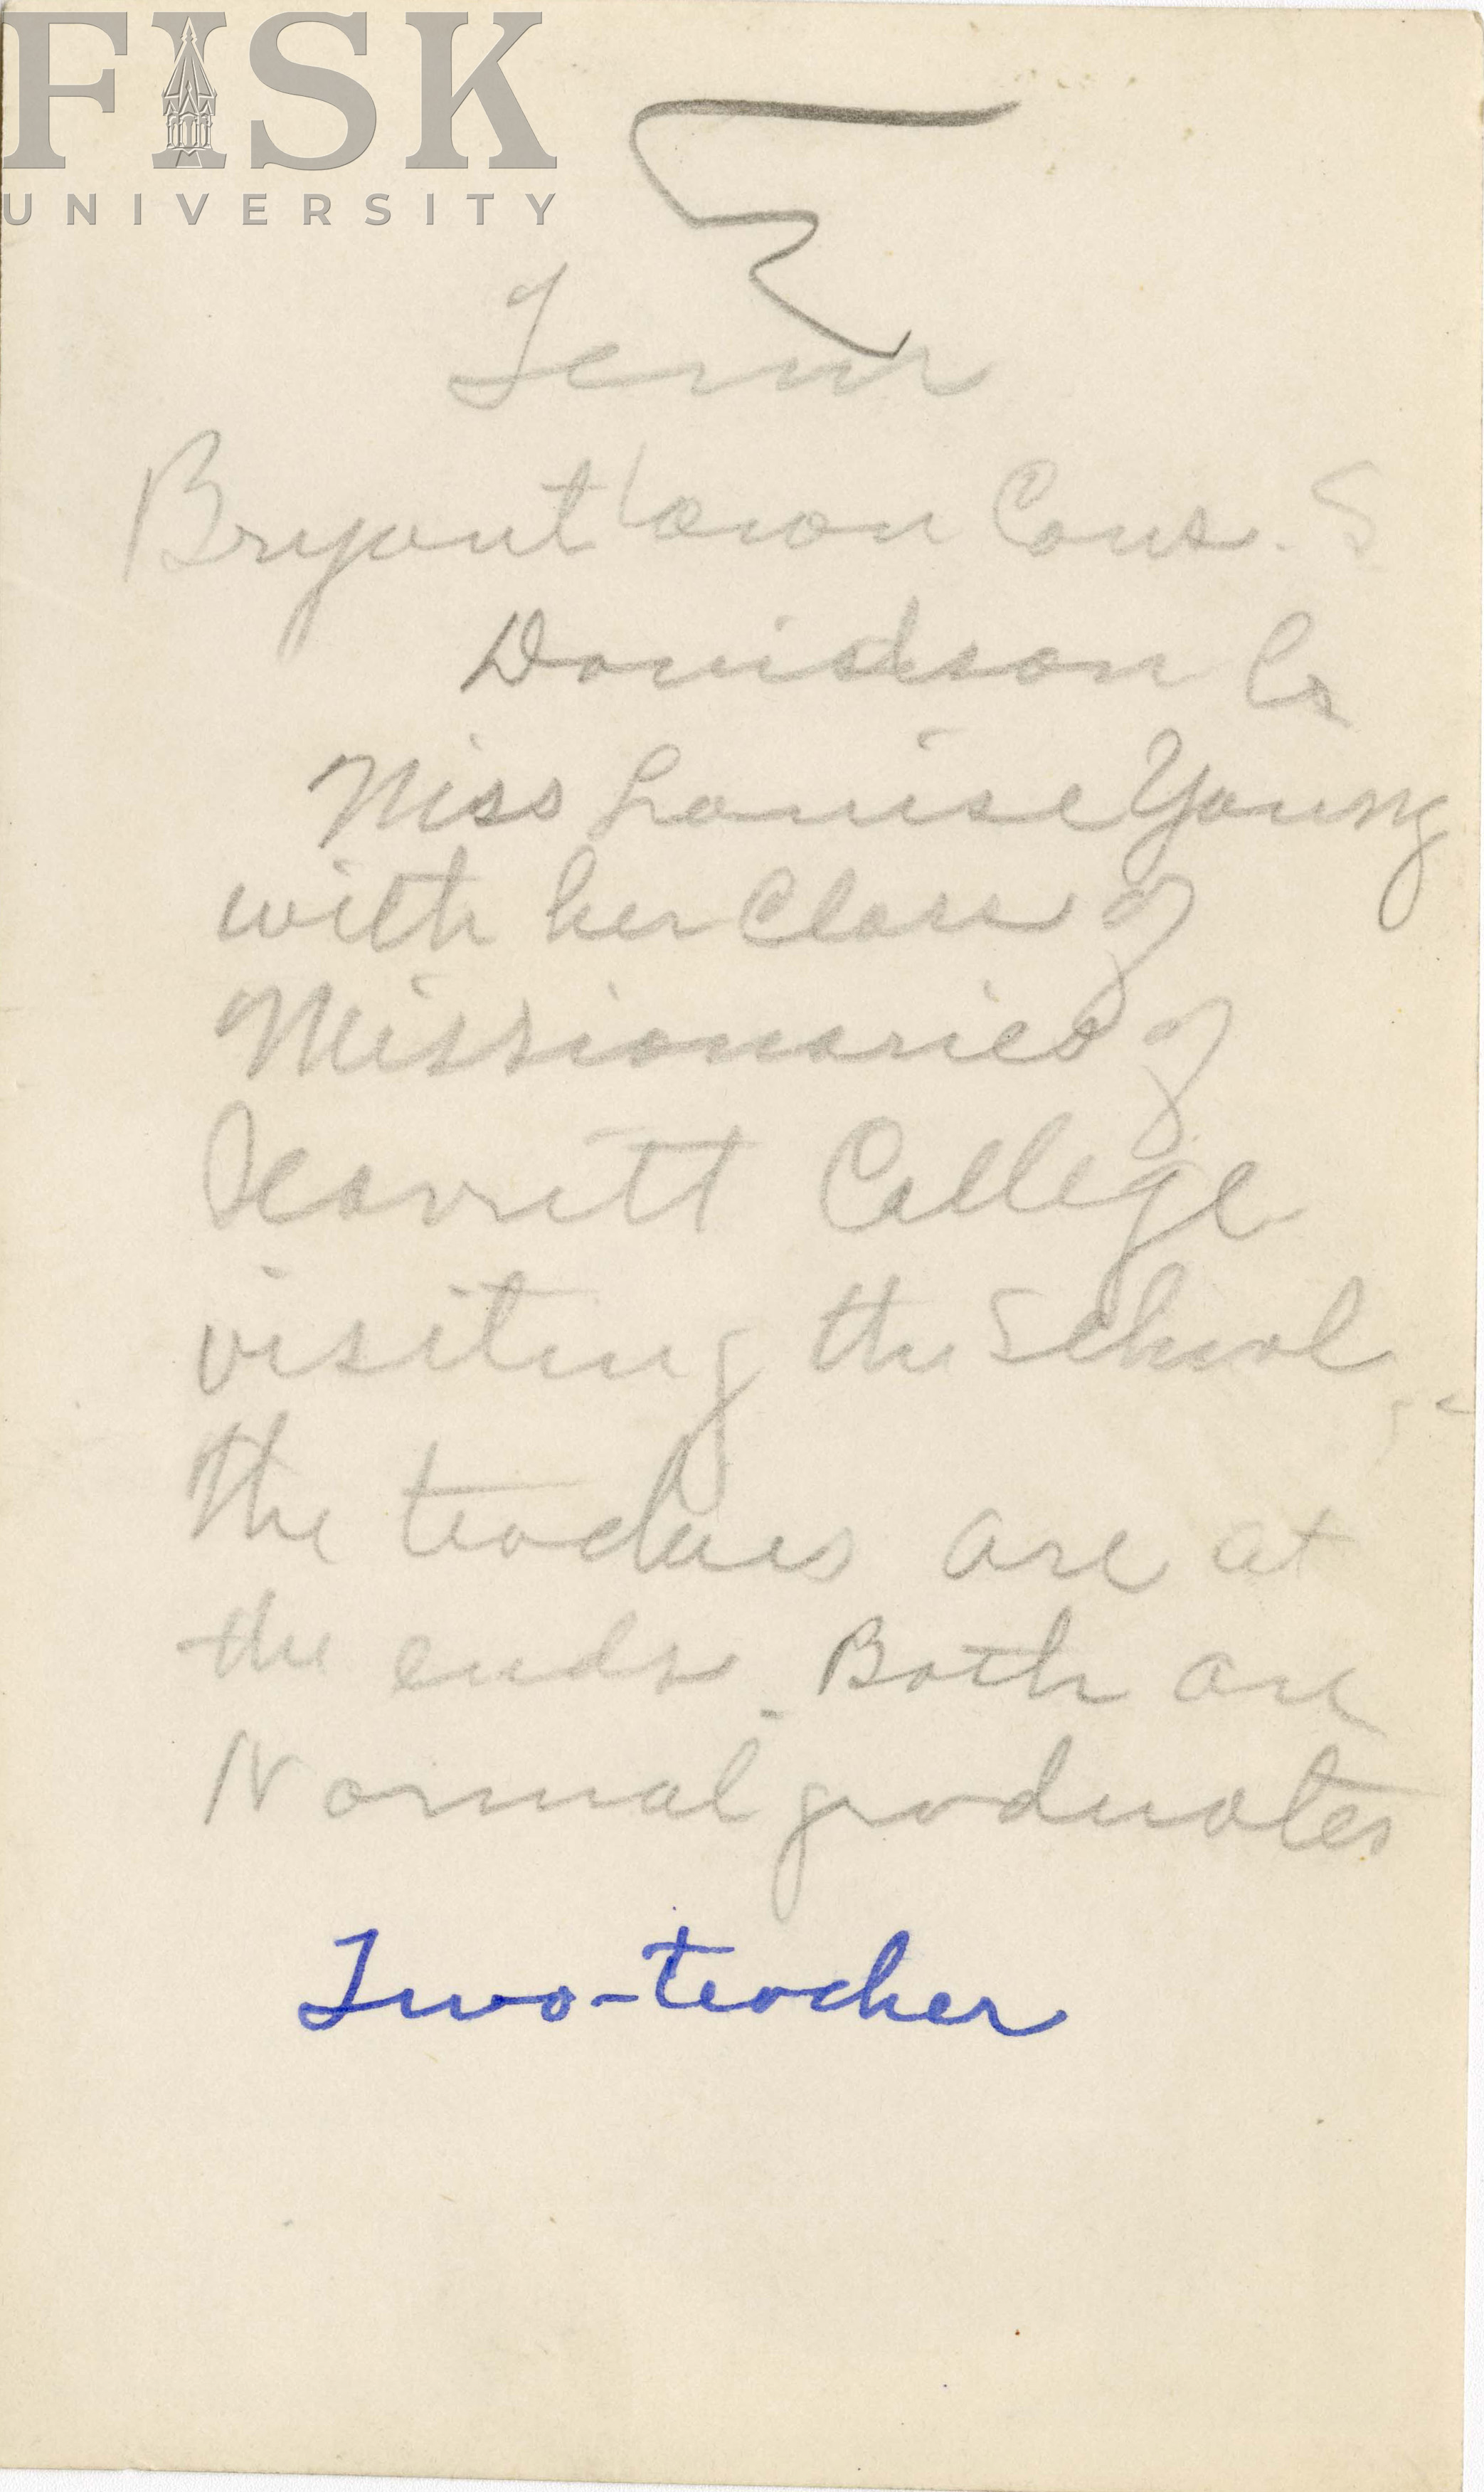 FISK
UNIVERSITY
Tenn
Bryant town Cons. S
Davidson Co
Miss Louise Young
with her Class of
Missionaries of
Scarritt College
visiting the School.
The teachers are at
the ends. Both are
Normal graduates
Two-teacher